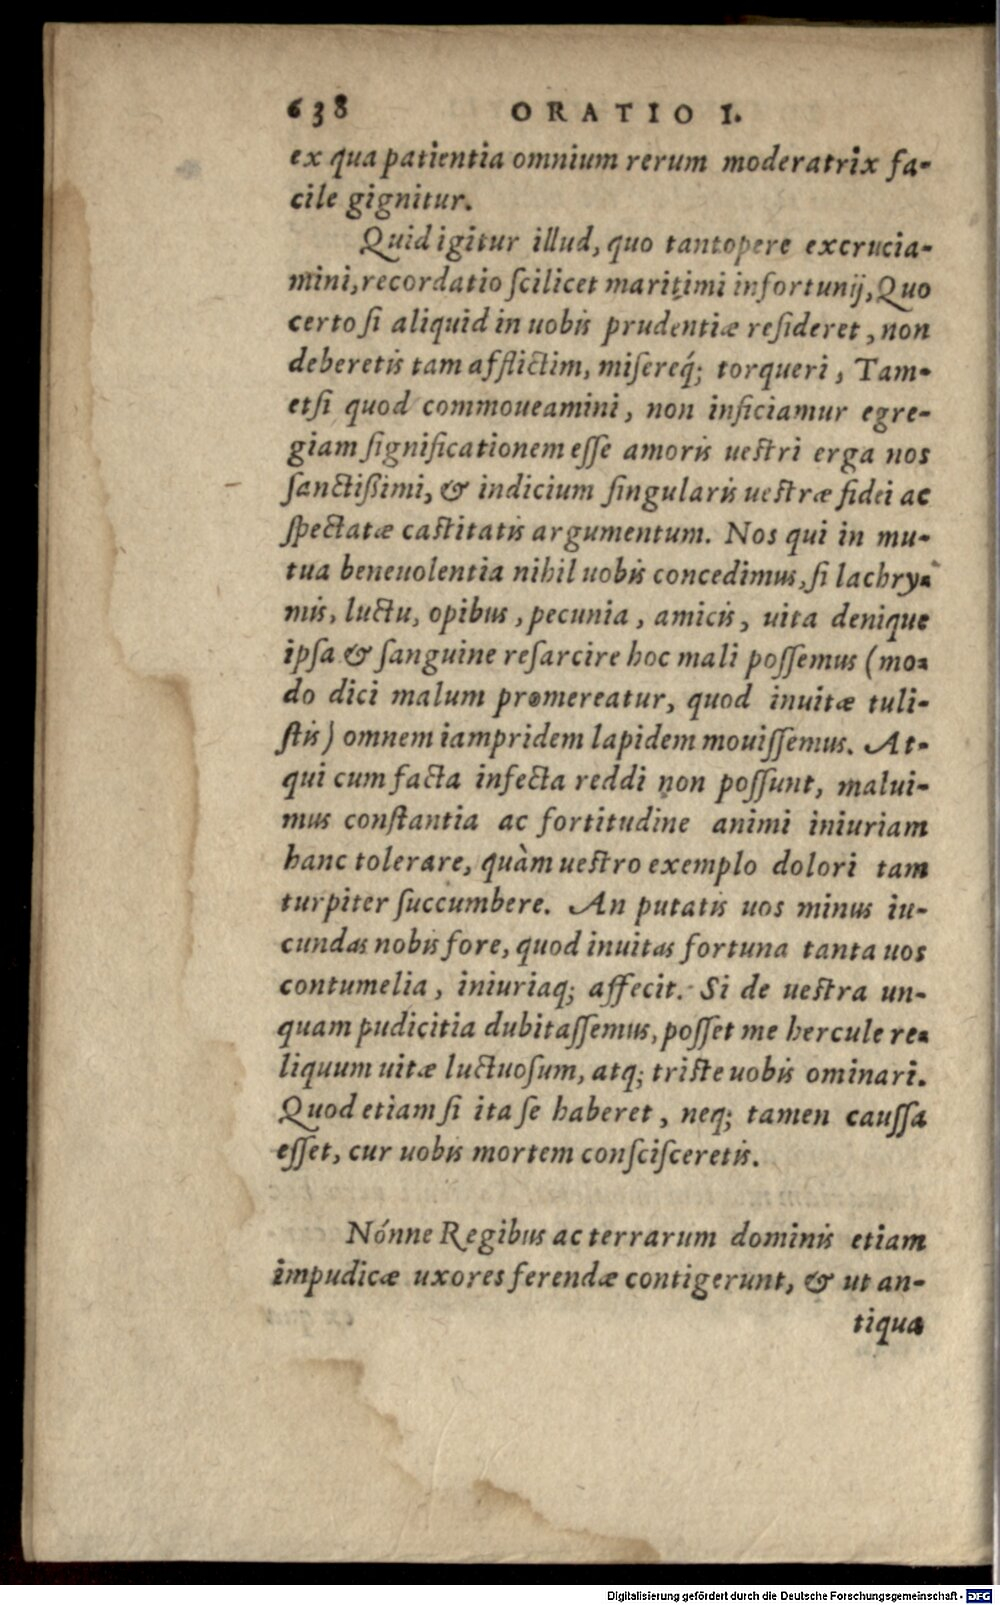 638 ORATIO I.
ex qua patientia omnium rerum moderatrix fa-
cile gignitur.
Quid igitur illud, quo tantopere excrucia-
mini, recordatio ſcilicet maritimi infortunij, Quo
certo ſi aliquid in uobis prudentiæ reſideret, non
deberetis tam afflictim, miſereq́; torqueri, Tam-
etſi quod commoueamini, non inficiamur egre-
giam ſignificationem eſſe amoris ueſtri erga nos
ſanctißimi, & indicium ſingularis ueſtræ fidei ac
ſpectatæ caſtitatis argumentum. Nos qui in mu-
tua beneuolentia nihil uobis concedimus, ſi lachry-
mis, luctu, opibus, pecunia, amicis, uita denique
ipſa & ſanguine reſarcire hoc mali poſſemus (mo-
do dici malum promereatur, quod inuitæ tuli-
ſtis) omnem iampridem lapidem mouiſſemus. At-
qui cum facta infecta reddi non poſſunt, malui-
mus conſtantia ac fortitudine animi iniuriam
hanc tolerare, quàm ueſtro exemplo dolori tam
turpiter ſuccumbere. An putatis uos minus iu-
cundas nobis fore, quod inuitas fortuna tanta uos
contumelia, iniuriaq; affecit. Si de ueſtra un-
quam pudicitia dubitaſſemus, poſſet me hercule re-
liquum uitæ luctuoſum, atq; triſte uobis ominari.
Quod etiam ſi ita ſe haberet, neq; tamen cauſſa
eſſet, cur uobis mortem conſciſceretis.
Nónne Regibus ac terrarum dominis etiam
impudicæ uxores ferendæ contigerunt, & ut an-
tiqua
Digitalisierung gefördert durch die Deutsche Forschungsgemeinschaft - DFG